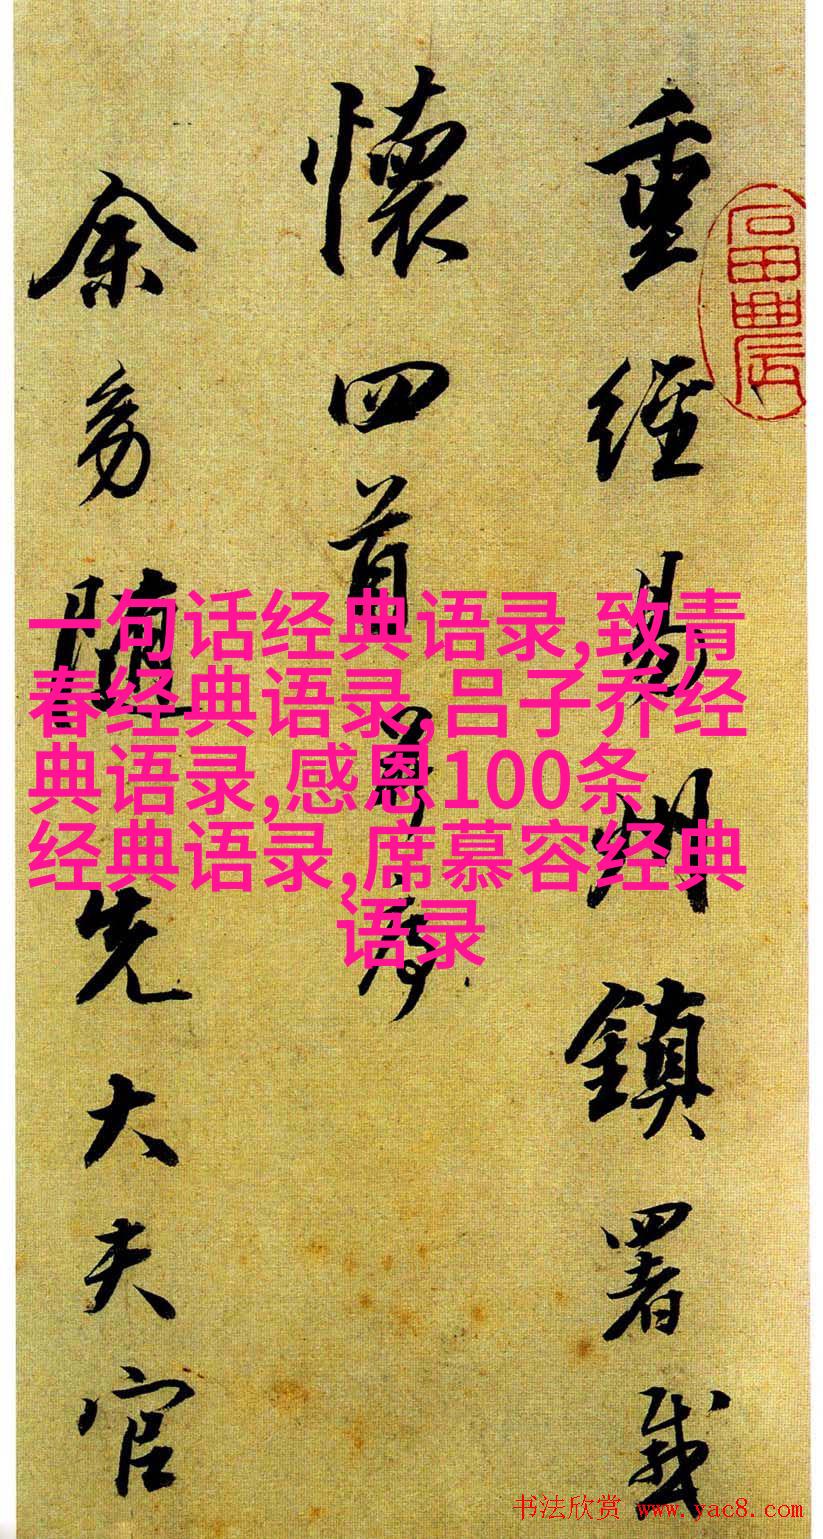 重經易州鎮署感
懷四首并序
余幼隨先大夫官
一句话经典语录,致青
春经典语录,吕子乔经
典语录,感恩100条
经典语录,席慕容经典
语录
书法欣赏 www.yac8.com